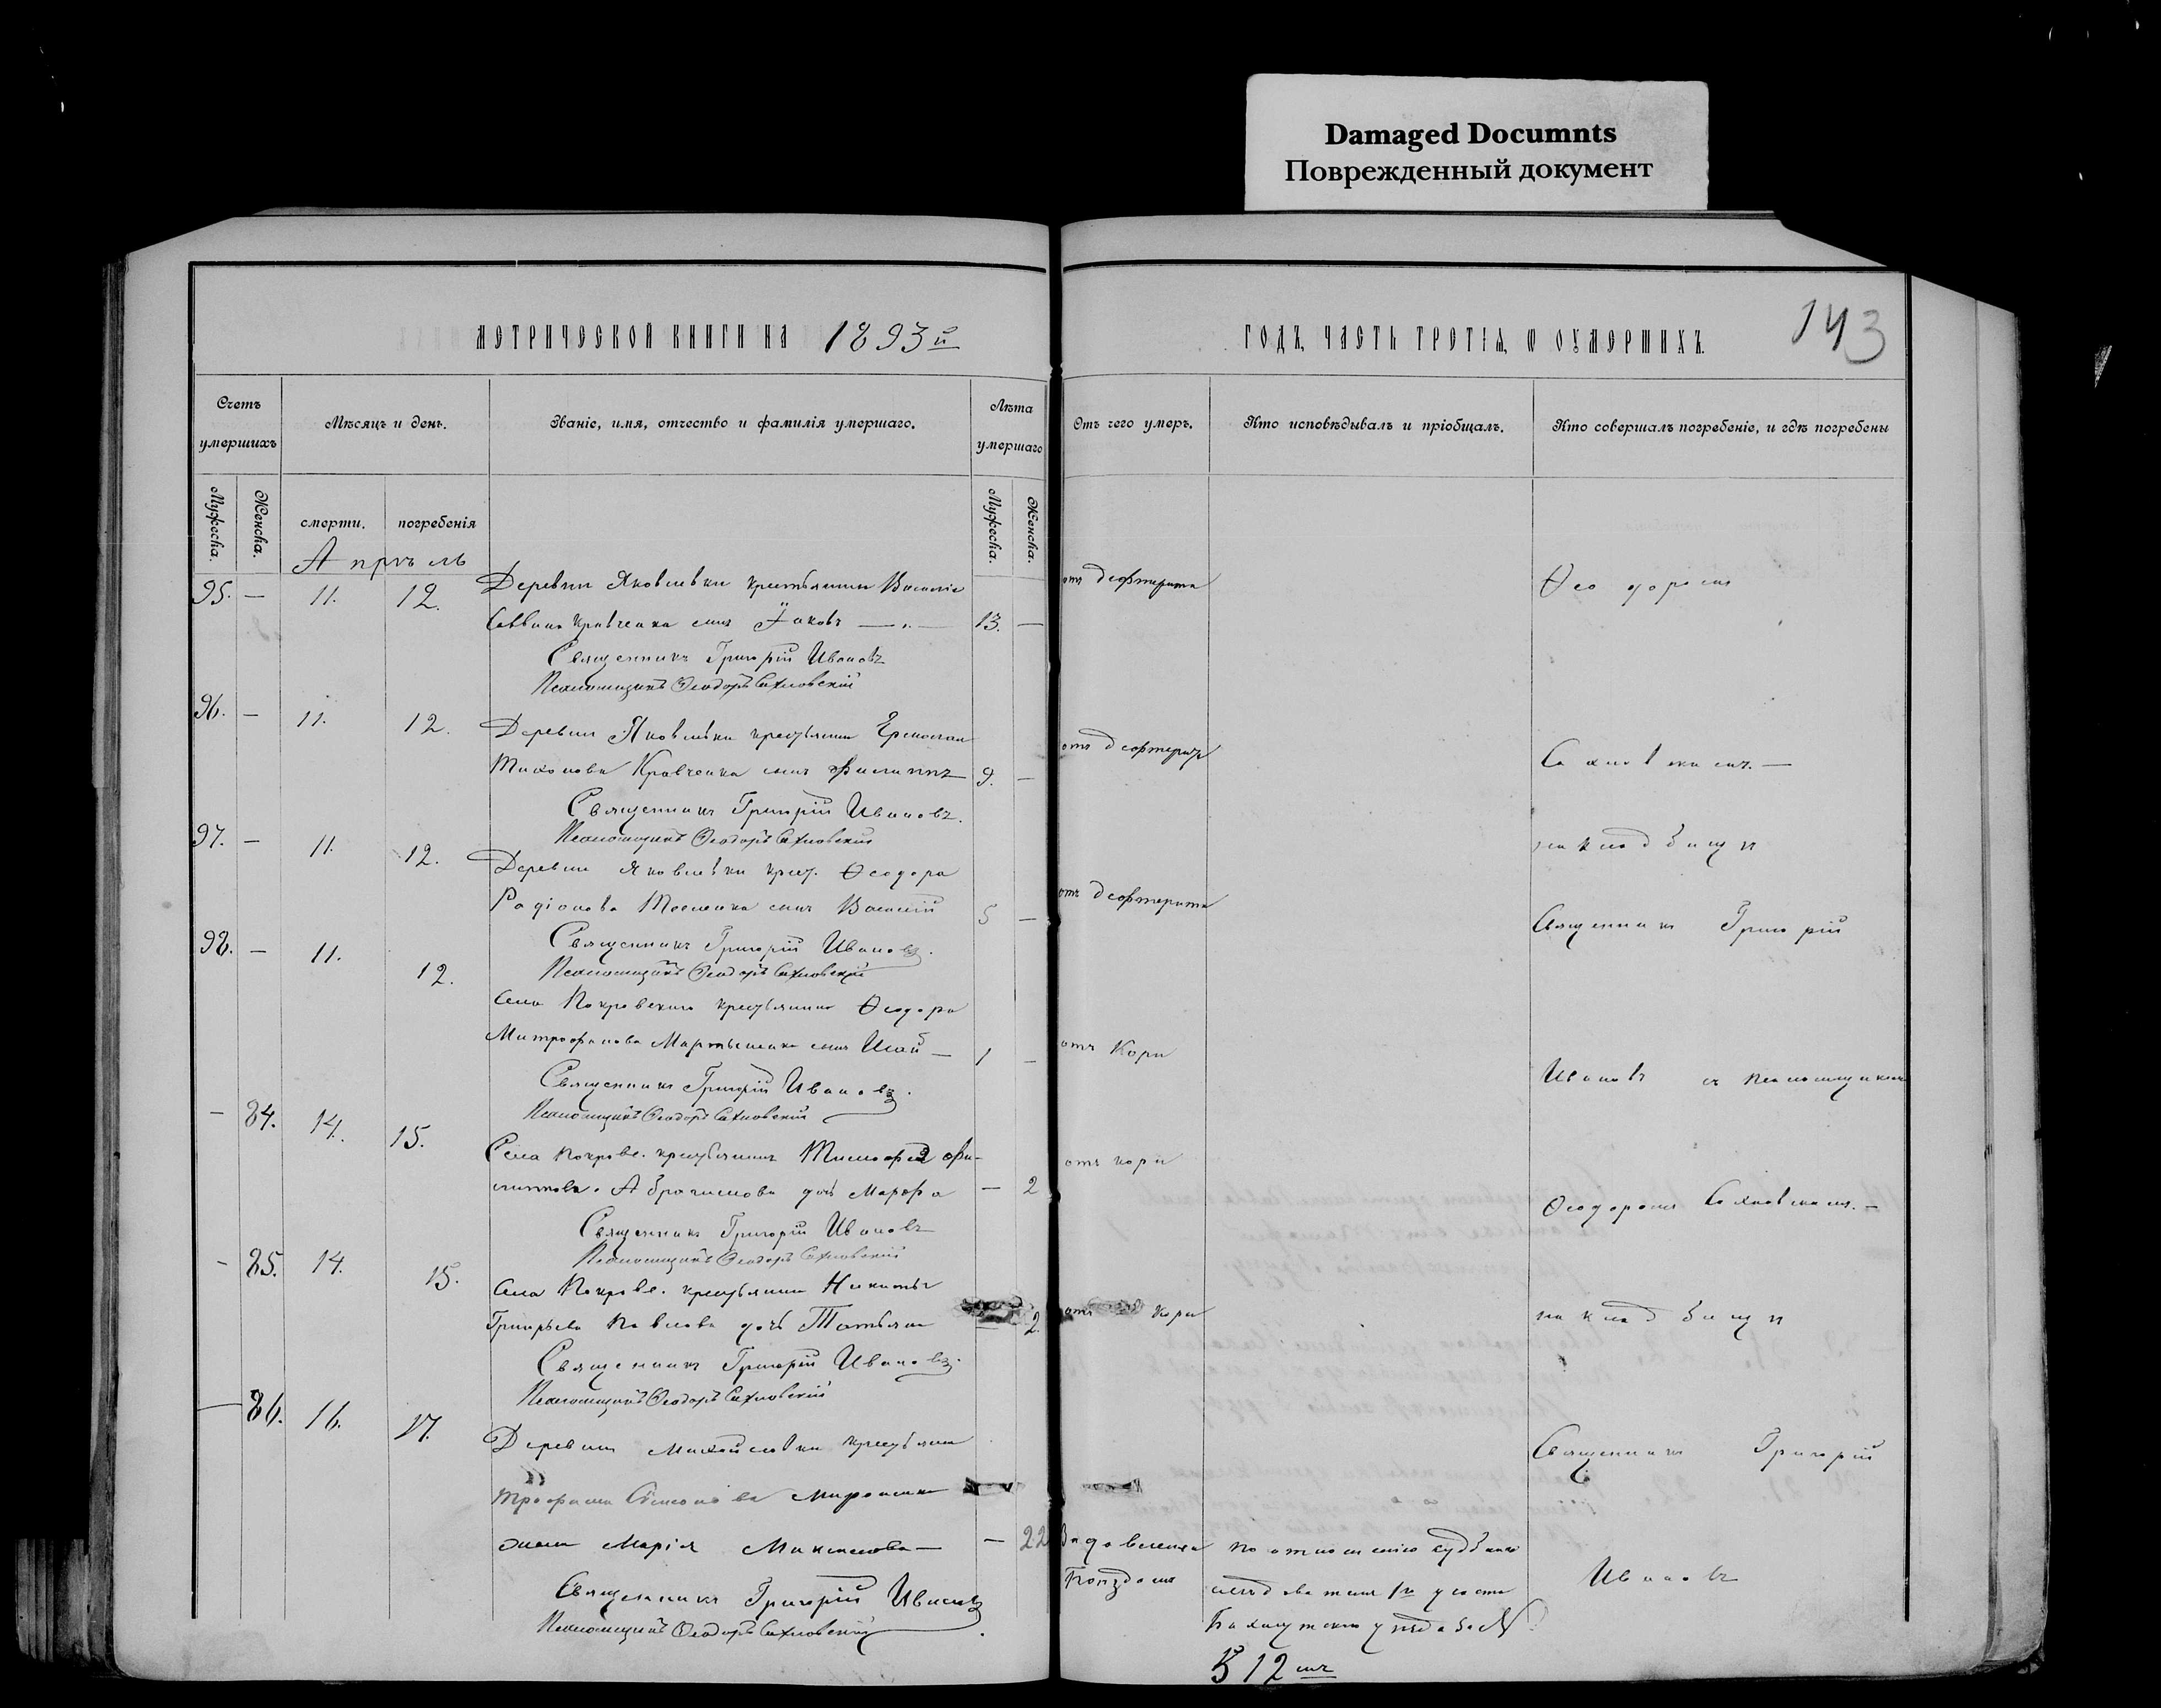 Damaged Documnts
Поврежденный документ
МЕТРИЧЕСКОЙ КНИГИ НА 1893й
ГОДЪ, ЧАСТЬ ТРЕТІЯ, Ѡ ОУМЕРШИХЪ.
143
Счетъ умершихъ
Мѣсяцъ и день.
Званіе, имя, отчество и фамилія умершаго.
Лѣта умершаго
Отъ чего умеръ.
Кто исповѣдывалъ и пріобщалъ.
Кто совершалъ погребеніе, и гдѣ погребены
Мужеска.
Женска.
смерти.
погребенія
Мужеска.
Женска.
Апрѣль
95. — 11. 12. Деревни Яковлевки крестьянина Василія
Саввина Кравченка сынъ Іаковъ — 13. —
отъ дефтерита
Ѳеодоромъ
Священникъ Григорій Ивановъ
Псаломщикъ Ѳеодоръ Сахновскій
96. — 11. 12. Деревни Яковлевки крестьянина Ермолая
Тихонова Кравченка сынъ Филиппъ 9. —
отъ дефтерита
Сахновскимъ. —
Священникъ Григорій Ивановъ.
Псаломщикъ Ѳеодоръ Сахновскій
97. — 11. 12. Деревни Яковлевки крест. Ѳеодора
Радіонова сынъ Василій 5 —
отъ дефтерита
на кладбищѣ
Священникъ Григорій
Священникъ Григорій Ивановъ.
Псаломщикъ Ѳеодоръ Сахновскій
98. — 11. 12. Села Покровскаго крестьянина Ѳеодора
Митрофанова Мартыненка сынъ Исай — 1 —
отъ Кори
Ивановъ съ псаломщикомъ
Священникъ Григорій Ивановъ.
Псаломщикъ Ѳеодоръ Сахновскій
— 84. 14. 15. Села Покровс. крестьянина Тимофея Фи-
липпова Абрамова дочь Марфа — 2
отъ кори
Ѳеодоромъ Сахновскимъ. —
Священникъ Григорій Ивановъ
Псаломщикъ Ѳеодоръ Сахновскій
— 85. 14. 15. Села Покровс. крестьянина Никиты
Григорьева Павлова дочь Татьяна — 2
отъ кори
на кладбищѣ
Священникъ Григорій Ивановъ.
Псаломщикъ Ѳеодоръ Сахновскій
— 86. 16. 17. Деревни Михайловки крестьянина
Священникъ Григорій
Трофима Симонова Мироненка
жена Марія Максимова — — 22
по отношенію судебнаго
поѣздомъ
слѣдователя 1го участка
Ивановъ
Священникъ Григорій Ивановъ
Псаломщикъ Ѳеодоръ Сахновскій
Бахмутскаго уѣзда за №
512мъ